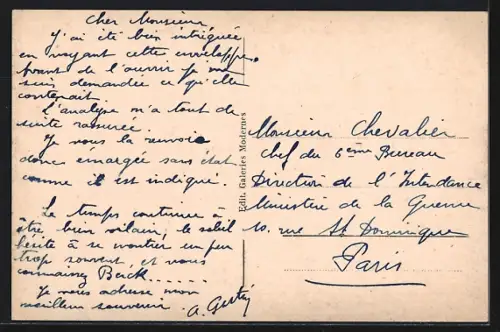 Cher Monsieur
J'ai été bien intriguée
en voyant cette enveloppe.
Avant de l'ouvrir je me
suis demandée ce qu'elle
contenait.
L'analyse m'a tout de
suite rassurée.
Je vous la renvoie
donc émargée sans état
comme il est indiqué.
Le temps continue à
être bien vilain, le soleil
hésite à se montrer un peu
trop souvent, et vous
connaissez Berck......
Je vous adresse mon
meilleur souvenir.
Edit. Galeries Modernes
Monsieur Chevalier
Chef du 6ème Bureau
Direction de l'Intendance
Ministère de la Guerre
10. rue St Dominique
Paris